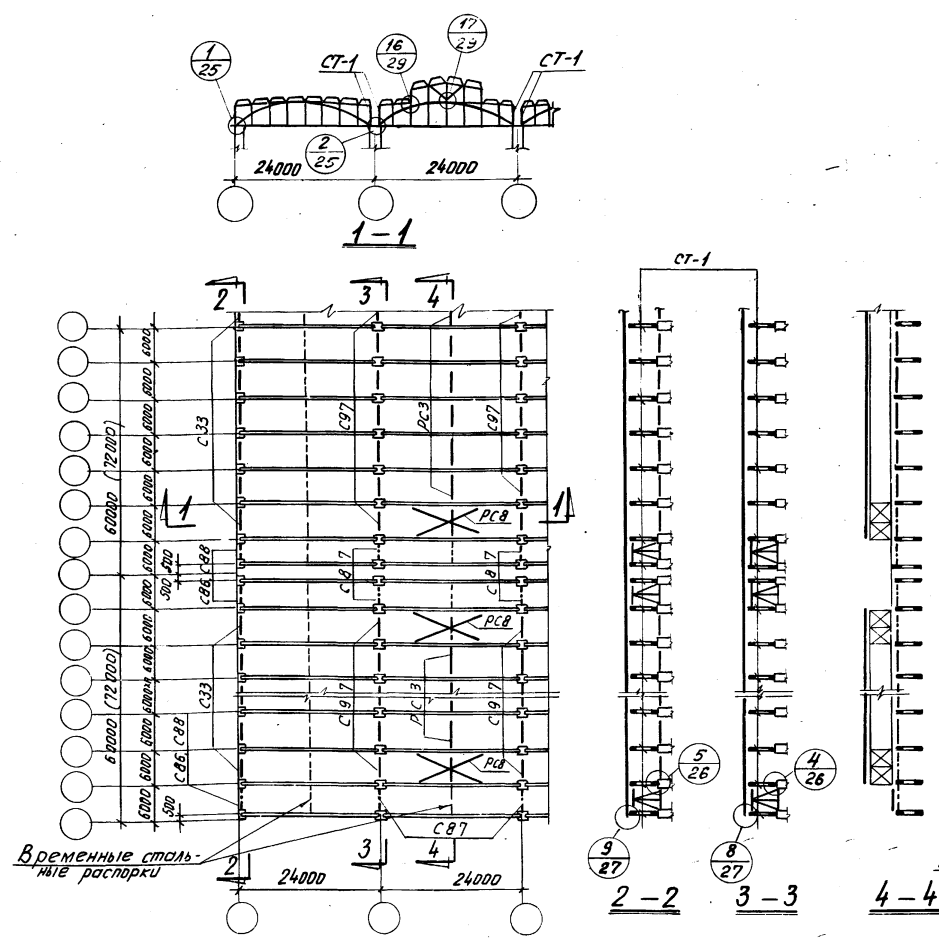 1
25
СТ-1
16
29
17
29
СТ-1
2
25
24000
24000
1-1
2
3
4
СТ-1
6000
6000
6000
6000
6000
6000
6000
500
500
6000
6000
6000
6000
6000
6000
500
60000 (72000)
60000 (72000)
С33
С97
РС3
С97
1
1
РС8
С86, С88
С87
С87
РС8
С33
С97
РС3
С97
С86, С88
РС8
С87
Временные сталь-
ные распорки
2
3
4
24000
24000
5
26
4
26
9
27
8
27
2-2
3-3
4-4